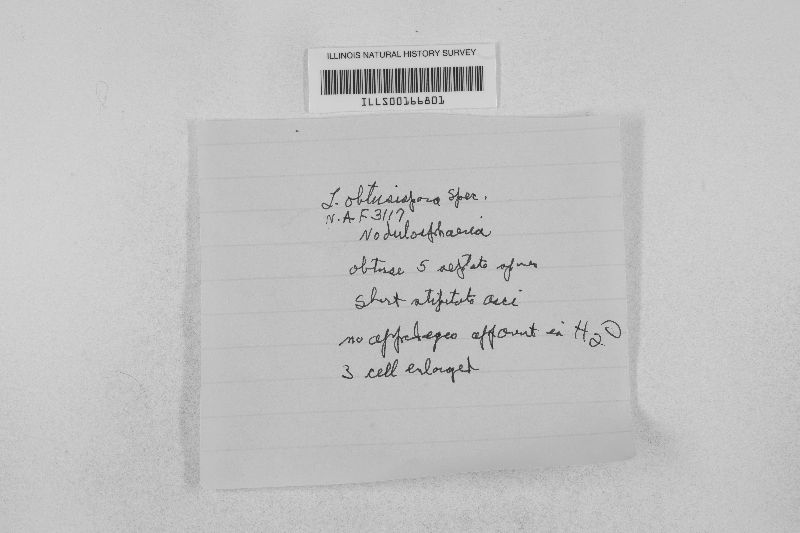 ILLINOIS NATURAL HISTORY SURVEY
ILLS00166801
L. obtusispora Speg.
N.A.F. 3117
Nodulosphaeria
obtuse 5 septate spores
short stipitate asci
no appendages apparent in H2O
3 cell enlarged